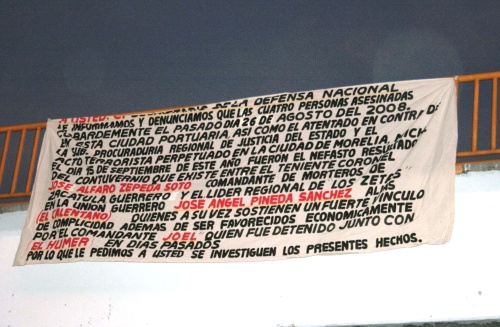 A USTED: SECRETARIO DE LA DEFENSA NACIONAL
LE INFORMAMOS Y DENUNCIAMOS QUE LAS CUATRO PERSONAS ASESINADAS
COBARDEMENTE EL PASADO DIA 26 DE AGOSTO DEL 2008.
EN ESTA CIUDAD PORTUARIA ASI COMO EL ATENTADO EN CONTRA DE
LA SUB. PROCURADURIA REGIONAL DE JUSTICIA DEL ESTADO Y EL
ACTO TERRORISTA PERPETUADO EN LA CIUDAD DE MORELIA, MICH.
EL DIA 15 DE SEPTIEMBRE DE ESTE AÑO FUERON EL NEFASTO RESULTADO
DEL CONTUVERNIO QUE EXISTE ENTRE EL TENIENTE CORONEL
JOSE ALFARO ZEPEDA SOTO COMANDANTE DE MORTEROS DE
PETATLA GUERRERO Y EL LIDER REGIONAL DE LOS ZETAS
EN LA UNION GUERRERO JOSE ANGEL PINEDA SANCHEZ ALIAS
(EL CALENTANO) QUIENES A SU VEZ SOSTIENEN UN FUERTE VINCULO
DE COMPLICIDAD ADEMAS DE SER FAVORECIDOS ECONOMICAMENTE
POR EL COMANDANTE JOEL QUIEN FUE DETENIDO JUNTO CON
EL HUMER EN DIAS PASADOS
POR LO QUE LE PEDIMOS A USTED SE INVESTIGUEN LOS PRESENTES HECHOS.